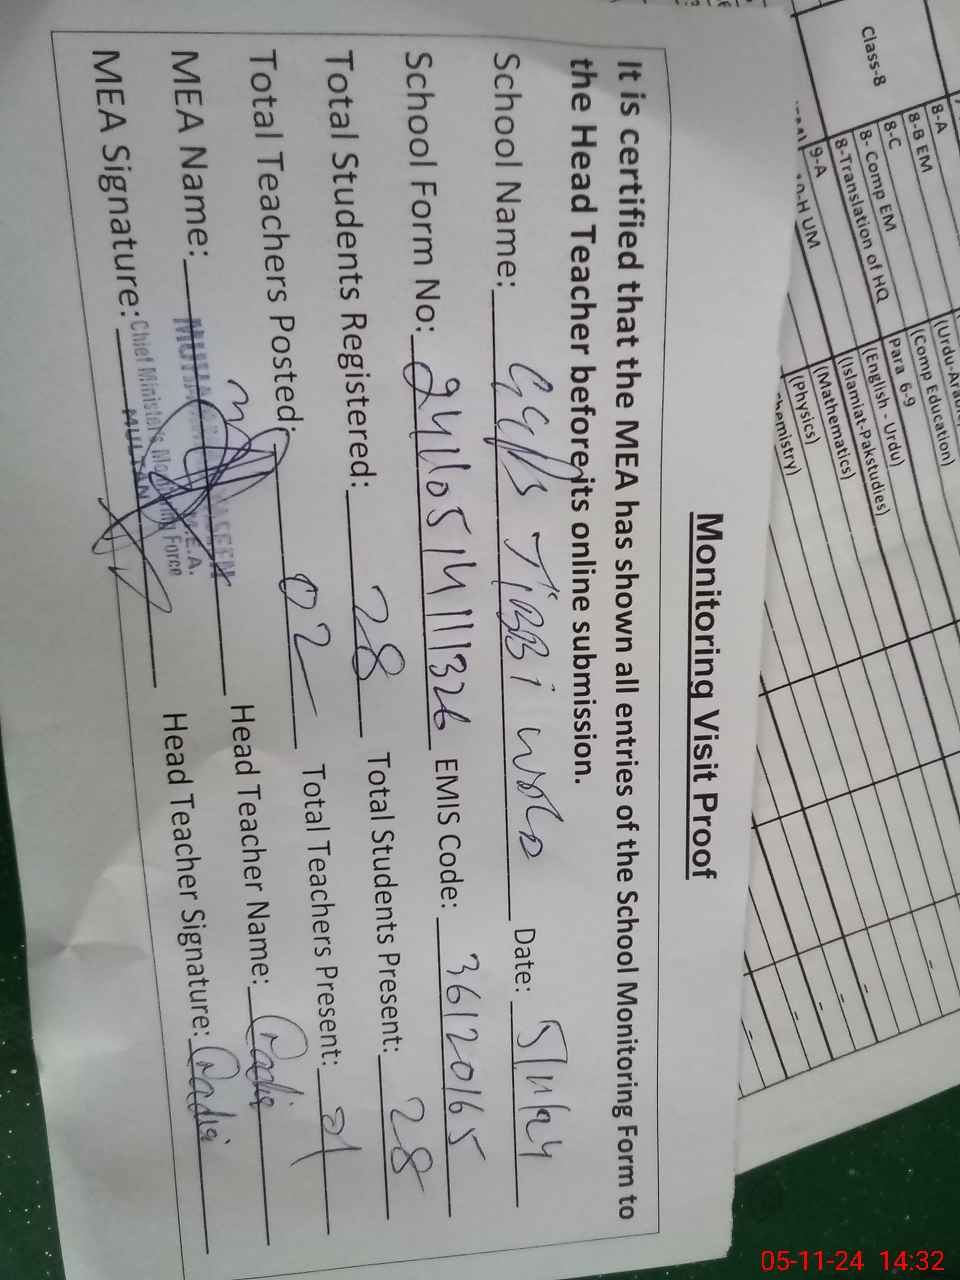 Monitoring Visit Proof
It is certified that the MEA has shown all entries of the School Monitoring Form to
the Head Teacher before its online submission.
School Name: GGPS TiBBi Date: 5/11/24
School Form No: EMIS Code: 36120165
Total Students Registered: 28 Total Students Present: 28
Total Teachers Posted: 02 Total Teachers Present:
MEA Name: Head Teacher Name: Nadia
Chief Minister's Monitoring Force
MEA Signature: Head Teacher Signature: Nadia
Class-8
8-A (Urdu-
8-B EM (Comp Education)
8-C Para 6-9
8- Comp EM (English - Urdu)
8-Translation of HQ (Islamiat-Pakstudies)
9-A (Mathematics)
UM (Physics)
05-11-24 14:32